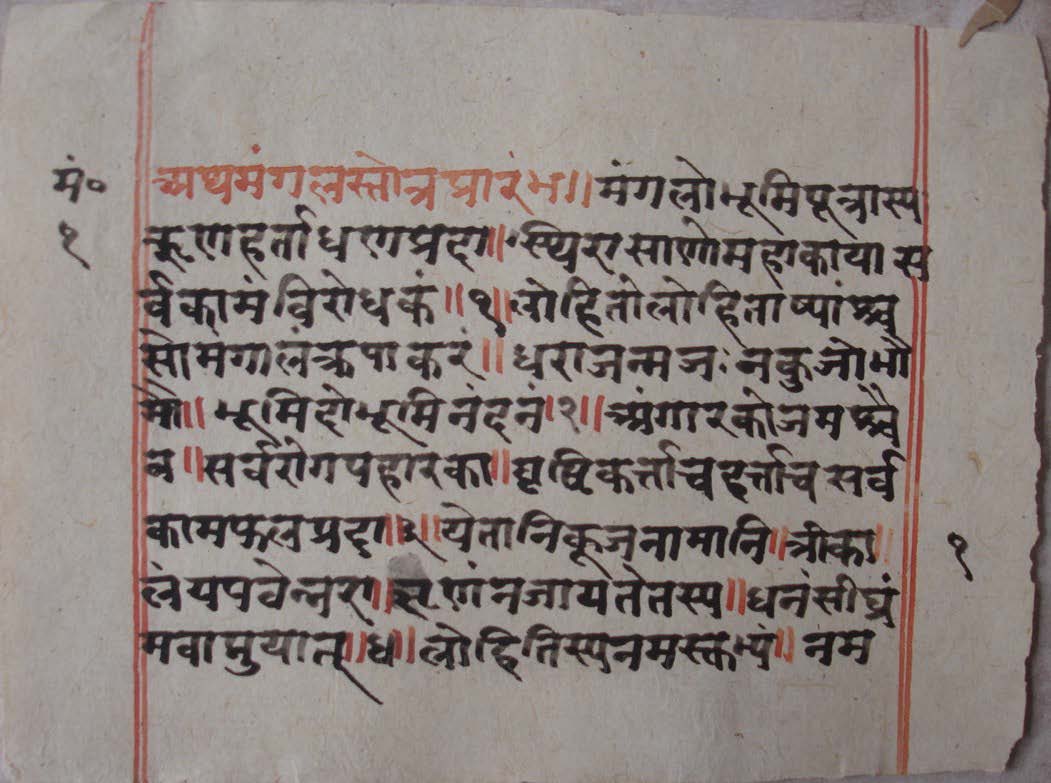 मं० अथमंगलस्तोत्रप्रारंभ॥ मंगलोभूमिपूत्रास्य
१ ऋणहर्ताधणप्रदा॥ स्थिरासाणोमहाकाया स
र्वकामंविरोधकं॥१॥लोहितोलोहिताष्यांश्च
सामगालंकृपाकरं॥ धराजन्मजःनकुजोभौ
मौ॥ भूमिदोभूमिनंदनं॥२॥ अंगारकोजमश्चै
व॥सर्वरोगपहारका॥वृष्टिकर्त्ताचहर्त्ताचसर्व
कामफलप्रदा॥३॥येतानिकूजनामानि॥त्रीका॥ १
लंयपवेन्नरा॥ णंनजायतेतस्य॥धनंसीघ्रं
मवाप्नुयात्॥४॥लोहितिस्यनमस्तुभ्यं॥ नम